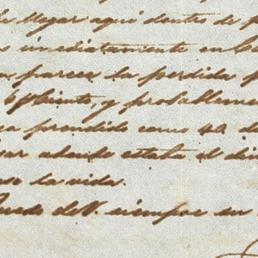 llegar aqui dentro de
inmediatamente en
parece la perdida
y probableme
prendido como 40 d
adonde estaba el di
la vida.
de V. siempre su